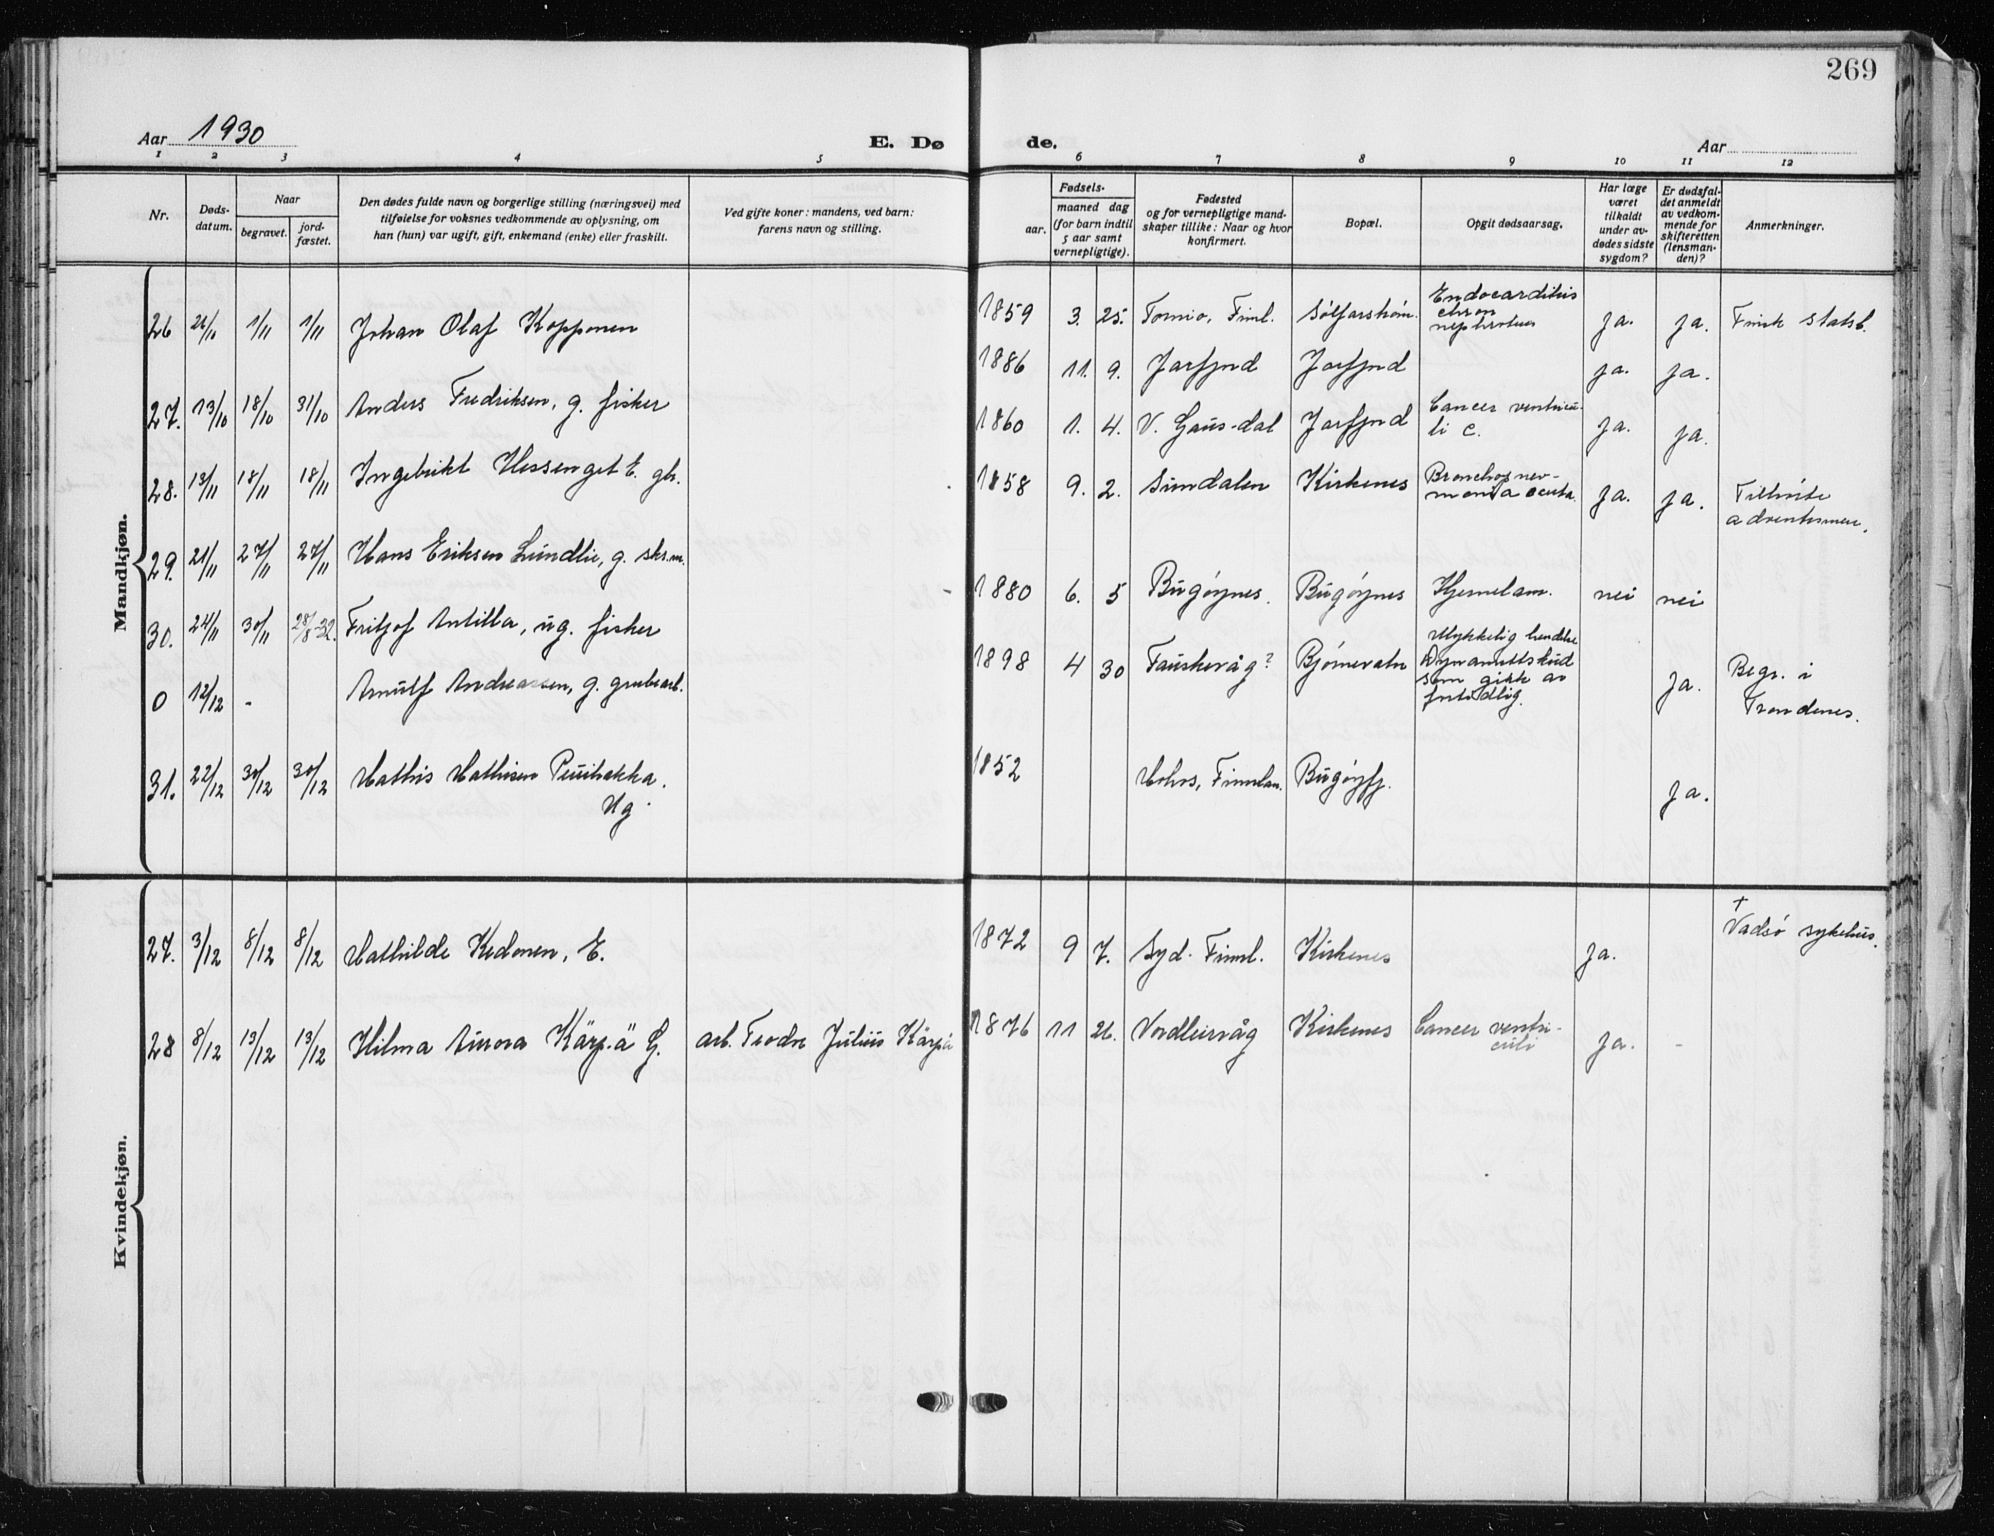 269
Aar 1930 E. Dø de. Aar
1 2 3 4 5 6 7 8 9 10 11 12
Nr.
Døds-
datum.
Naar
begravet.
jord-
fæstet.
Den dødes fulde navn og borgerlige stilling (næringsvei) med
tilføielse for voksnes vedkommende av oplysning, om
han (hun) var ugift, gift, enkemand (enke) eller fraskilt.
Ved gifte koner: mandens, ved barn:
farens navn og stilling.
Fødsels-
aar.
maaned dag
(for barn indtil
5 aar samt
vernepligtige).
Fødested
og for vernepligtige mand-
skaper tillike: Naar og hvor
konfirmert.
Bopæl.
Opgit dødsaarsag.
Har læge
været
tilkaldt
under av-
dødes sidste
sygdom?
Er dødsfal-
det anmeldt
av vedkom-
mende for
skifteretten
(lensman-
den)?
Anmerkninger.
Mandkjøn.
26 1/11 1/11 Johan Olaf Kopponen 1859 3. 25. Tornio, Finl. Endocarditis
chron
ja. ja. Finsk statsb.
27. 13/10 18/10 31/10 Anders Fredriksen, g. fisker 1886 11. 9. Jarfjord Jarfjord ja. ja.
28. 13/11 18/11 18/11 Ingebrikt E. gbr. 1860 1. 4. V. Gaus-dal Jarfjord Cancer ventricu-
li c. ja. ja.
29. 21/11 27/11 27/11 Hans Eriksen Lundlie, g. skr.m. 1858 9. 2. Sundalen Kirkenes Bronchopnev-
monia acuta. ja. ja. Tilhørte
adventismen.
30. 24/11 30/11 28/8-32. Fritjof Antilla, ug. fisker 1880 6. 5 Bugøynes. Bugøynes Hjernelam. nei nei
0 12/12 - Arnulf Andreassen, g. grubearb. 1898 4 30 Fauskevåg? Bjørnevatn Ulykkelig hendelse
Dynamittskud
som gikk av
for tidlig. ja. Begr. i
Trondenes.
31. 22/12 30/12 30/12 Mathis Mathisen
Ug. 1852 Bugøyfj. ja.
Kvindekjøn.
27. 3/12 8/12 8/12 Mathilde Kedonen, E. 1872 9 7. Syd. Finnl. Kirkenes ja. +
Vadsø sykehus.
28 8/12 13/12 13/12 Hilma Aurora Kärpä G. arb. Julius Kärpä 1876 11 26. Kirkenes Cancer ventri-
culi ja. -